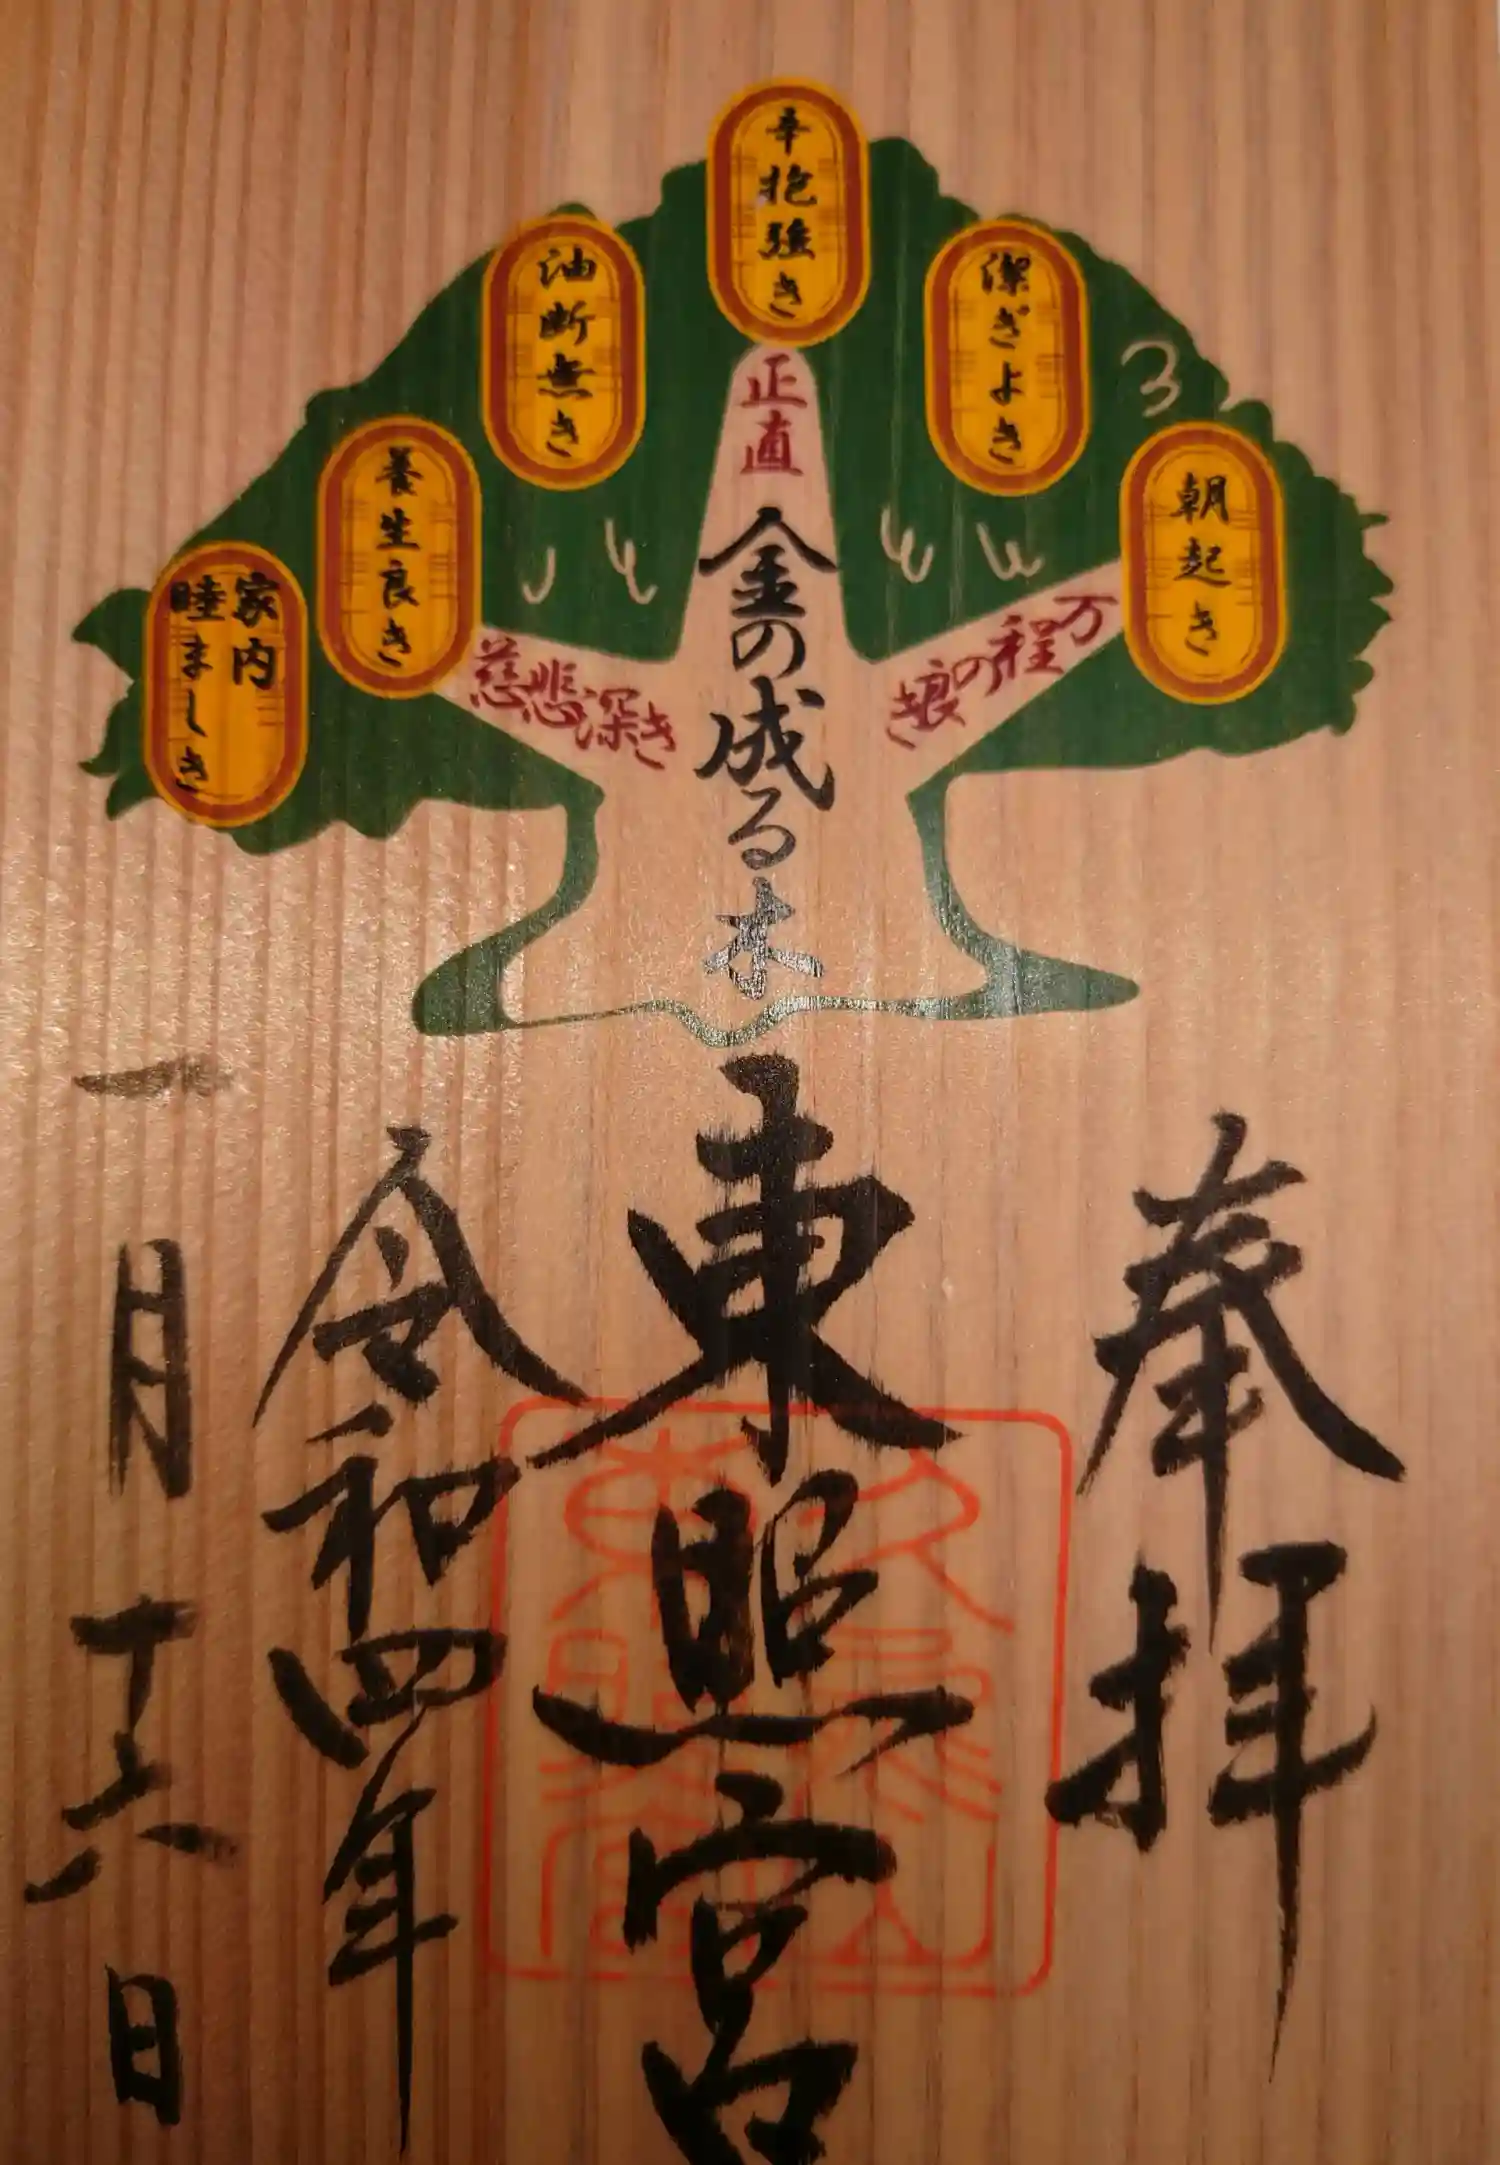 朝起き
潔ぎよき
辛抱強き
油断無き
養生良き
家内
睦ましき
万程の
正直
慈悲深き
金の成る木
奉拝
東照宮
令和四年
一月十六日